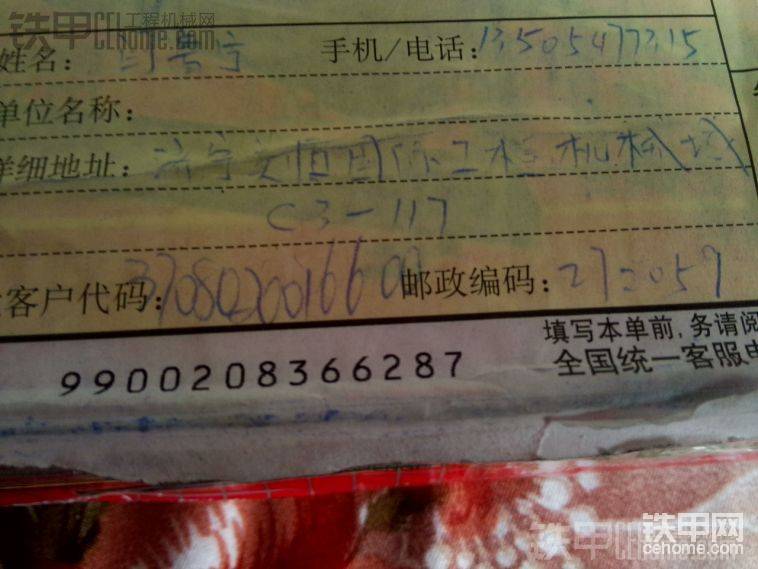 铁甲 工程机械网 cehome.com
姓名: 闫善宁 手机/电话: 13505477315
单位名称:
详细地址: 济宁交恒国际工程机械城
C3-117
客户代码: 37080200166 邮政编码: 272057
填写本单前,务请阅
9900208366287 全国统一客服电
铁甲网
cehome.com